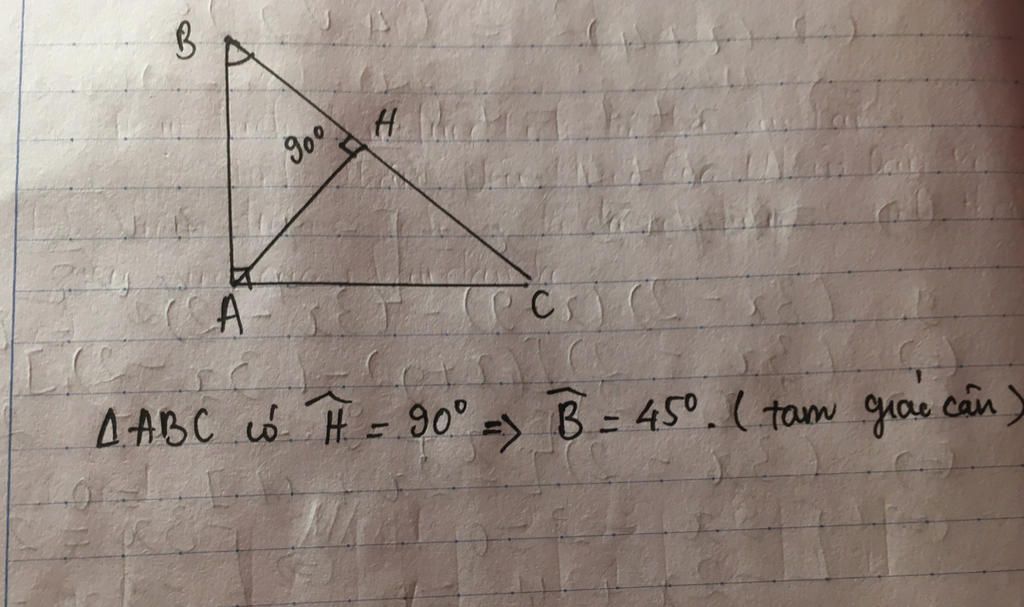 B
90° H
A C
ΔABC có Ĥ = 90° => B̂ = 45°. (tam giác cân)